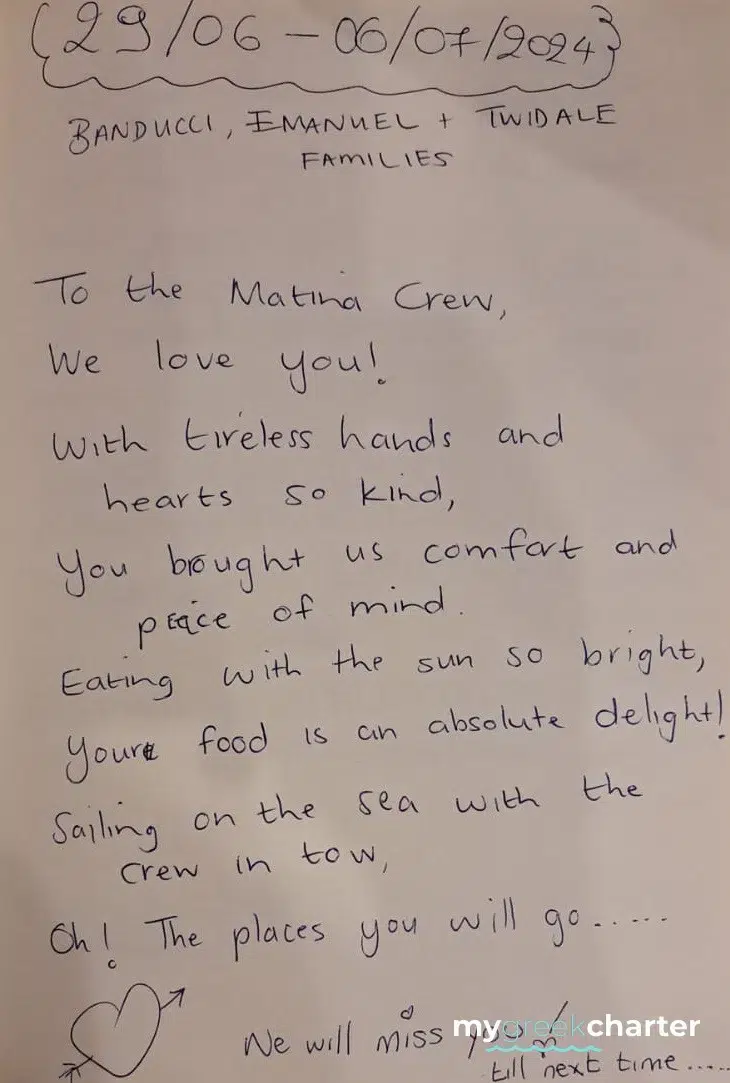 {29/06 – 06/07/2024}
BANDUCCI, EMANUEL + TWIDALE
FAMILIES
To the Matina Crew,
We love you!
With tireless hands and
hearts so kind,
You brought us comfort and
peace of mind.
Eating with the sun so bright,
Your food is an absolute delight!
Sailing on the sea with the
crew in tow,
Oh! The places you will go......
We will miss you!
till next time.....
mygreekcharter